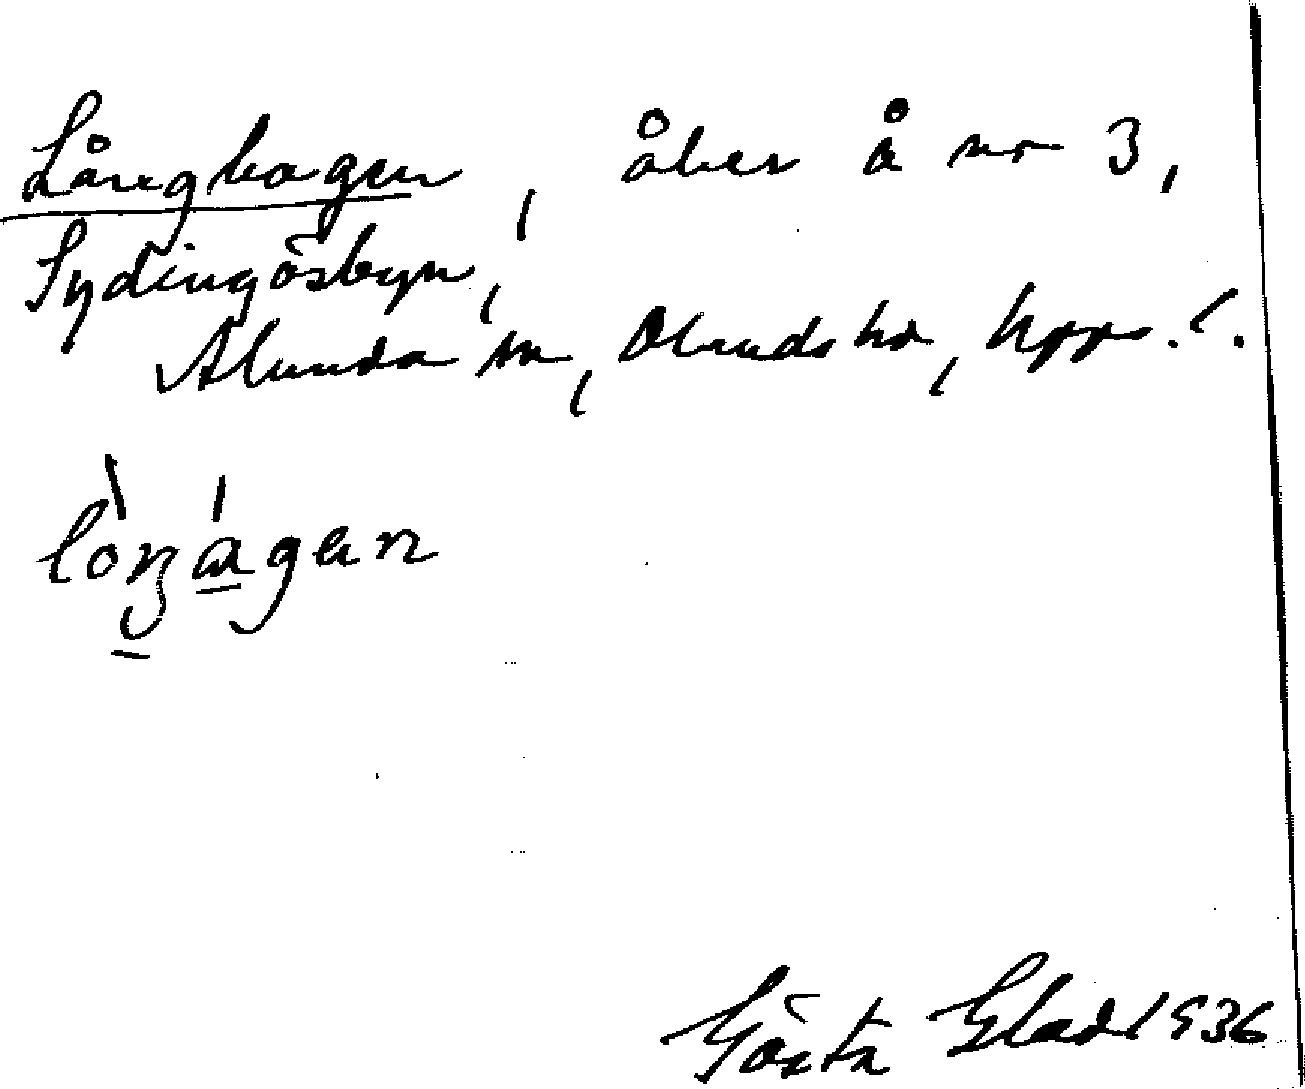 Långhagen, åker å nr 3,
Sydingösbyn,
Alunda sn, Olands hd, Upps. l.
lòŋágen
Gösta Glad 1936